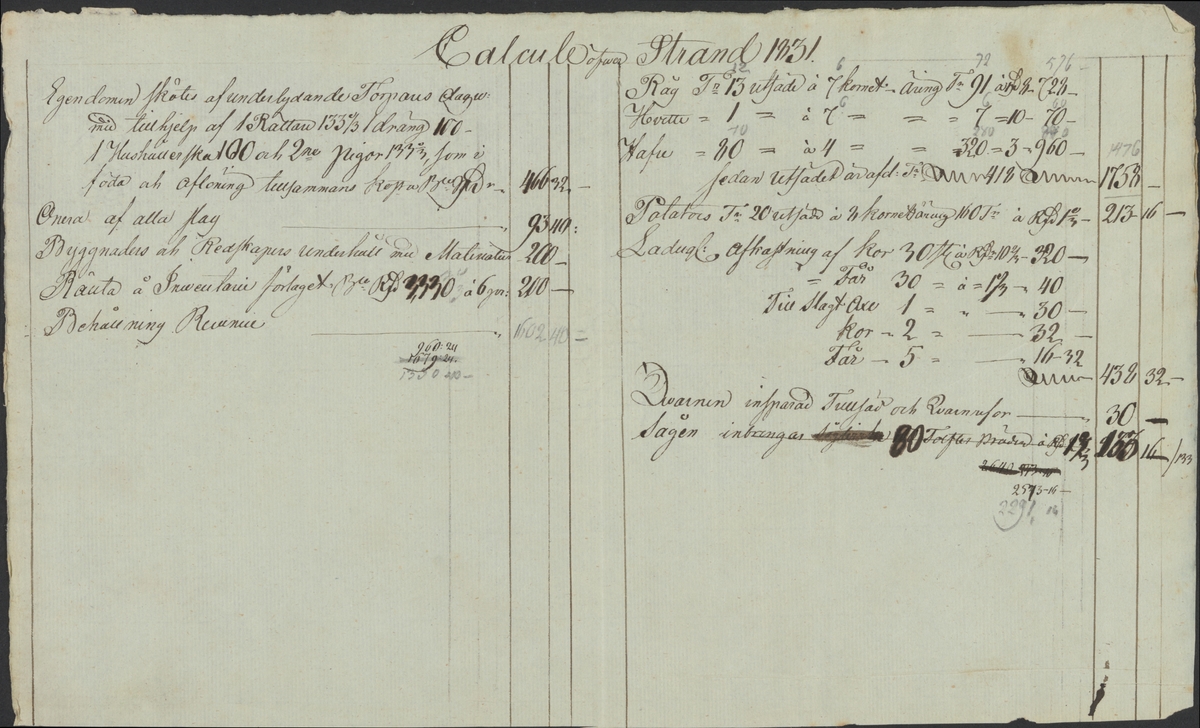 Calcule öfver Strand 1831.
Egendomen skötes af underlydande Torpare
med tillhjelp af 1 Rättare 133 1/3 1 dräng 100 –
1 Hushållerska 100 och 2ne pigor 133 1/3, som i
föda och aflöning tillsammans – 466 32 –
Onera af alla slag – 93 40:
Byggnaders och Redskapers underhåll med Materialier 200 –
Ränta å Inventarii förlaget Rd 3330 à 6 pr: 200 –
Behållning Revenue – 1602 40 –
960: 24
1679: 24
12 6 72 576 –
Råg Tr 13 utsäde à 7 kornet – äring Tr 91 à Rd 8 – 728 –
6 6 60
Hvette = 1 = à 7 = = = 7 = 10 – 70 –
70 280 840
Hafre = 80 = à 4 = = 320 = 3 – 960 – 1476
sedan utsädet är afd: Tr 418 1758 –
Potatoes Tr 20 utsäde à 8 kornet äring 160 Tr à Rd 1 1/3 – 213 16 –
Ladug: Afkastning af kor 30 st à Rd 10 2/3 – 320 –
= Får 30 = à = 1 1/3 – 40
Till Slagt Oxe 1 = " – 30 –
kor – 2 = – 32 –
Får – 5 = – 16 – 32
438 32 –
Qvarnen insparad Tullsäd och Qvarnresor – 30 –
Sågen inbringar 80 Tolfter Bräder à Rd 1 2/3 133 16 – / 133
2573 – 16 –
2291 16